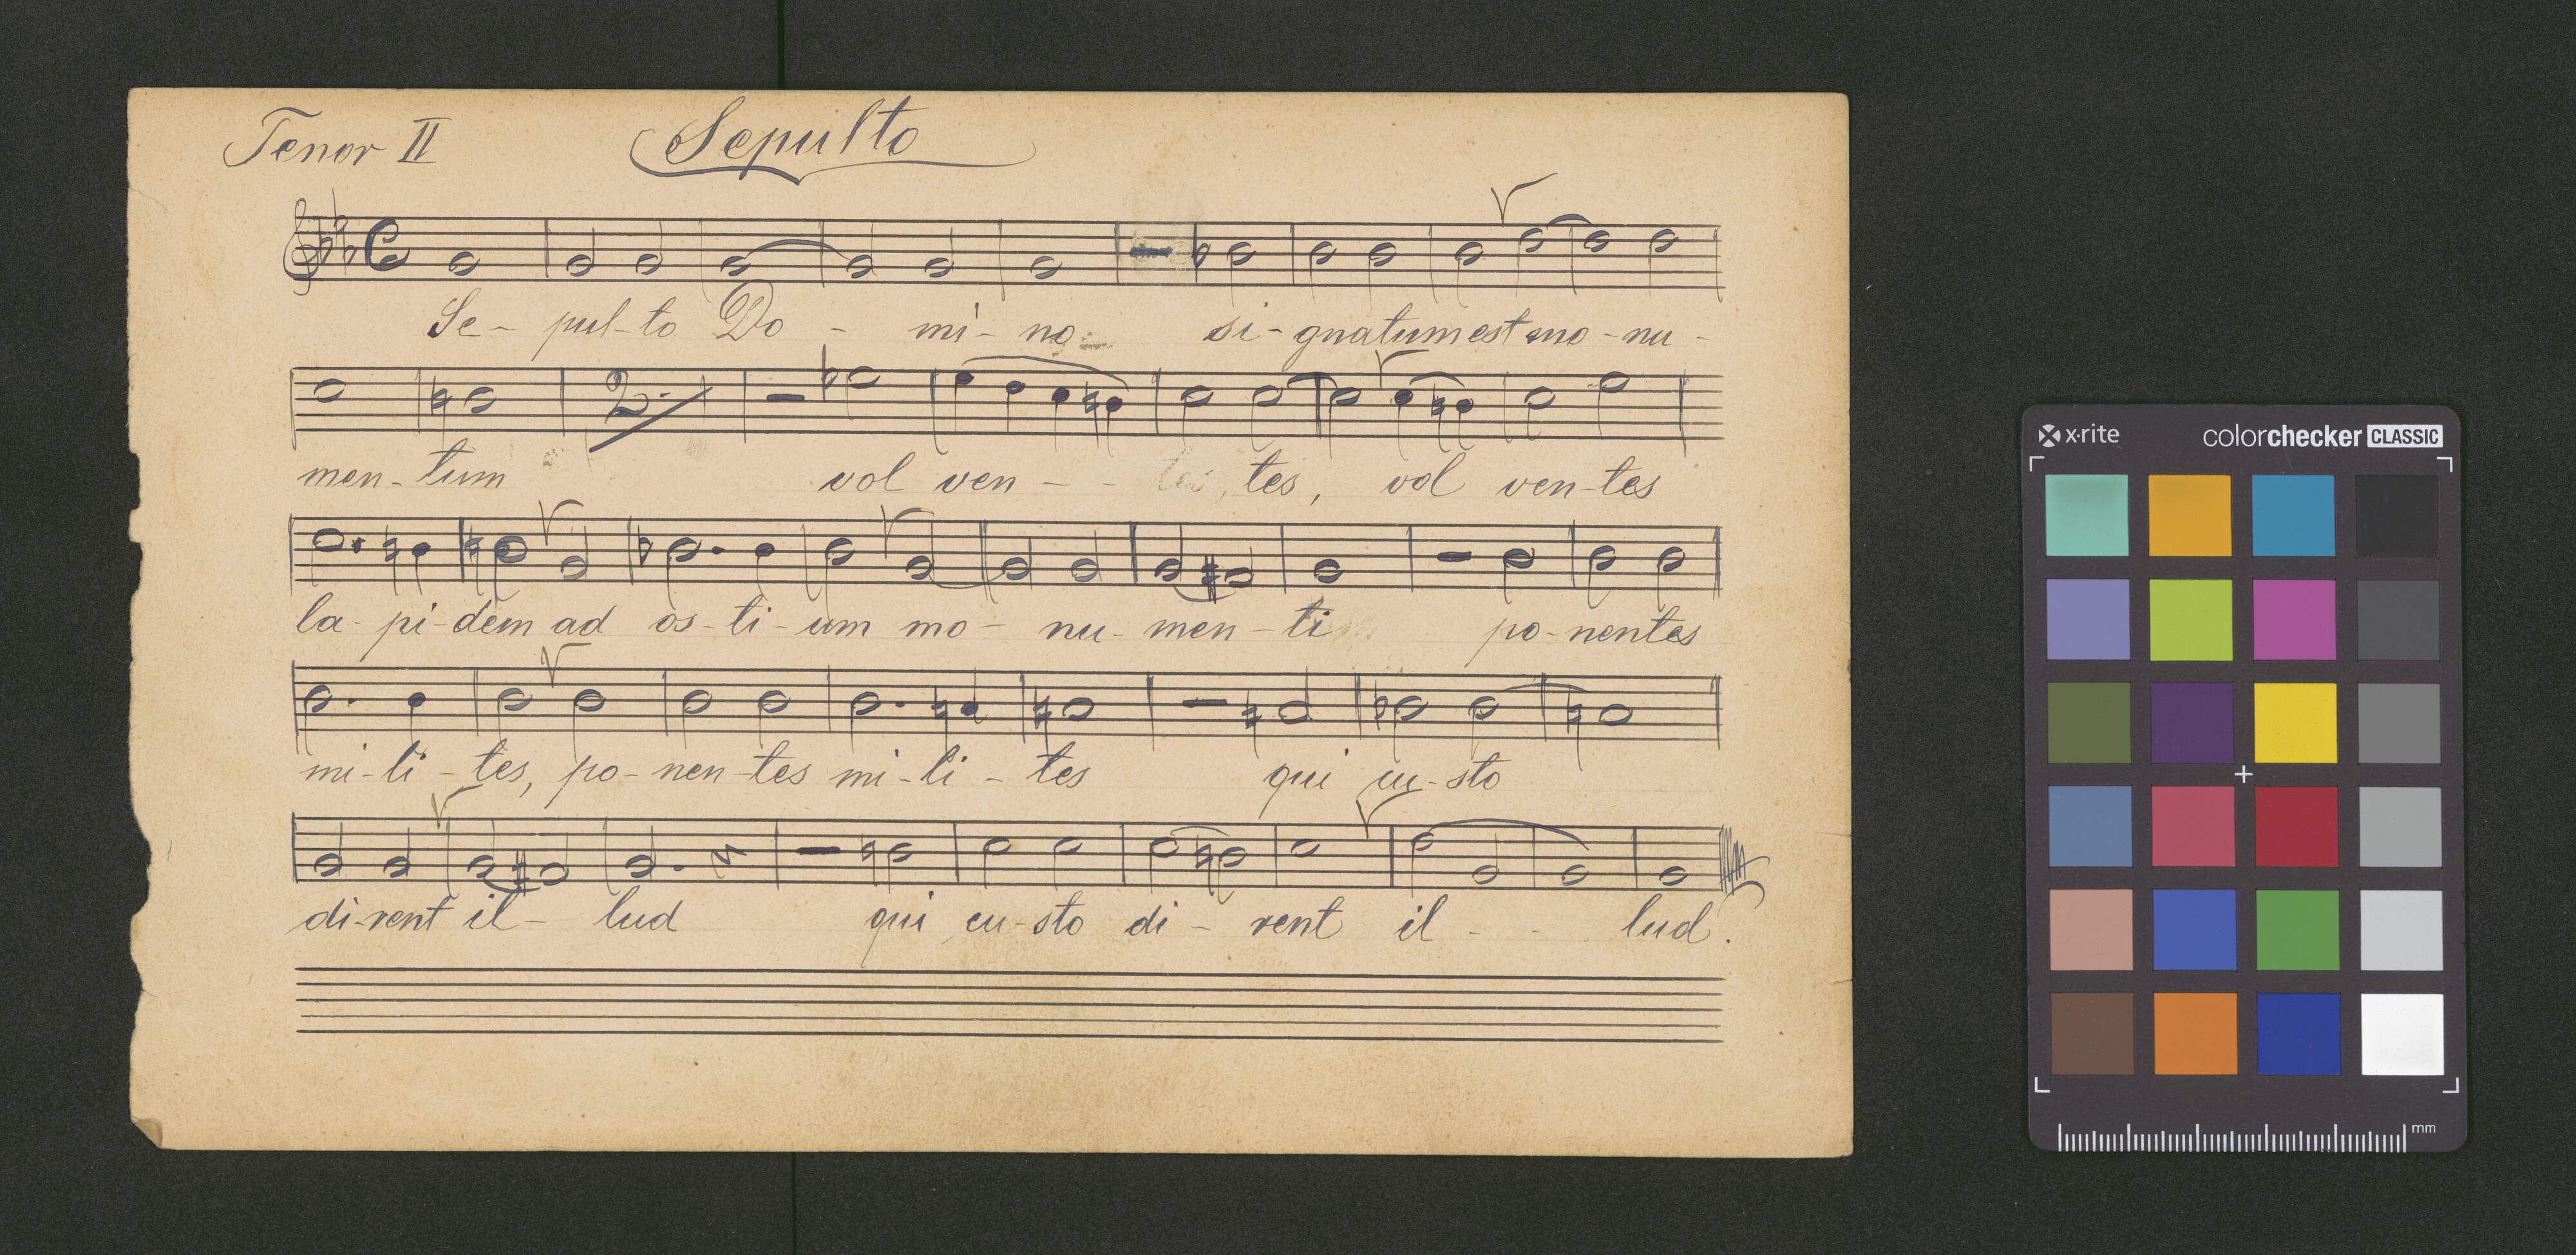 Tenor II Sepulto
Se- pul-to Do - mi- no si- gnatum est mo-nu-
2.
men-tum vol ven - - tes, tes, vol ven-tes
la-pi-dem ad os-ti-um mo- nu-men-ti po-nentes
mi-li-tes, po-nen-tes mi-li-tes qui cu-sto
di-rent il- lud qui cu-sto di- rent il - - lud.
x-rite colorchecker CLASSIC
mm